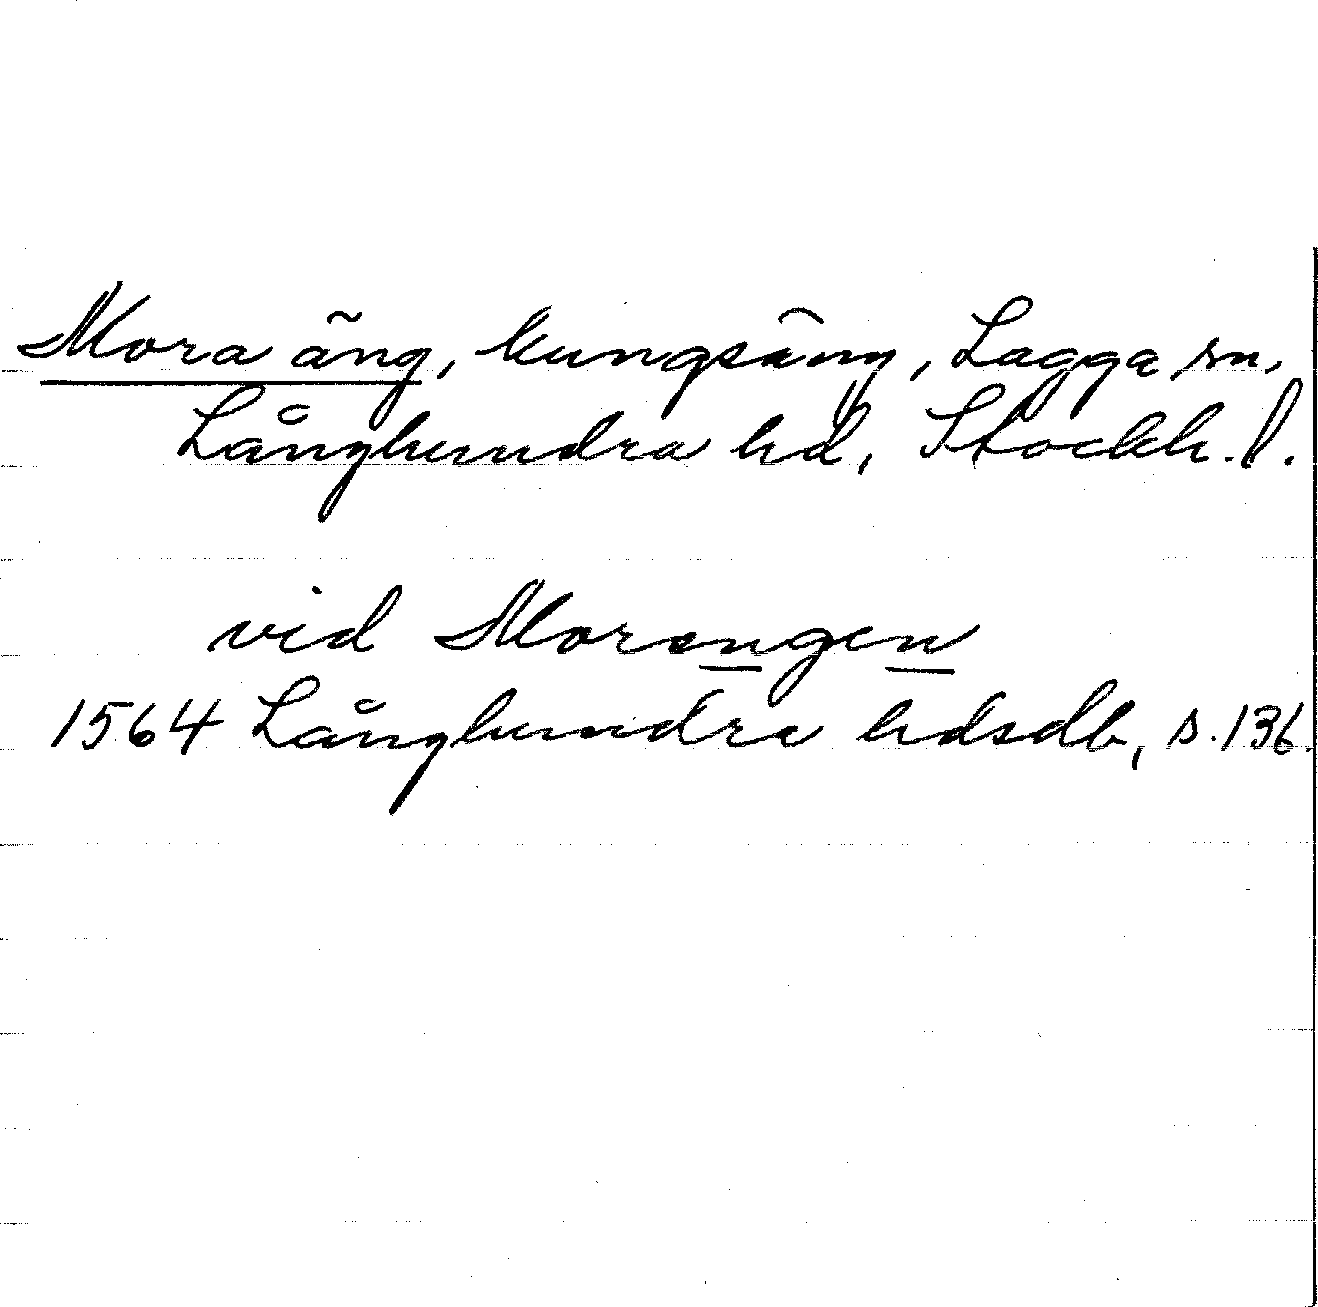 Mora äng, kungsäng, Lagga sn,
Långhundra hd, Stockh. l.
vid Morengen
1564 Långhundra hdsdb, s. 136.